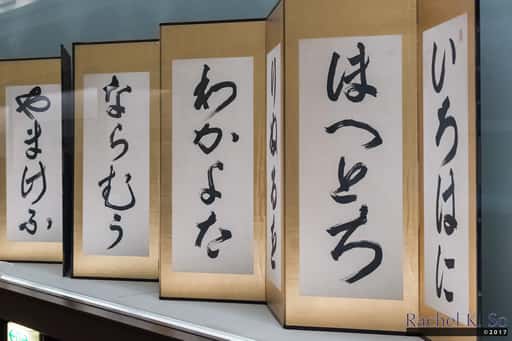 いろはに
ほへとち
りぬるを
わかよた
ならむう
やまけふ
Rachel K. So
©2017